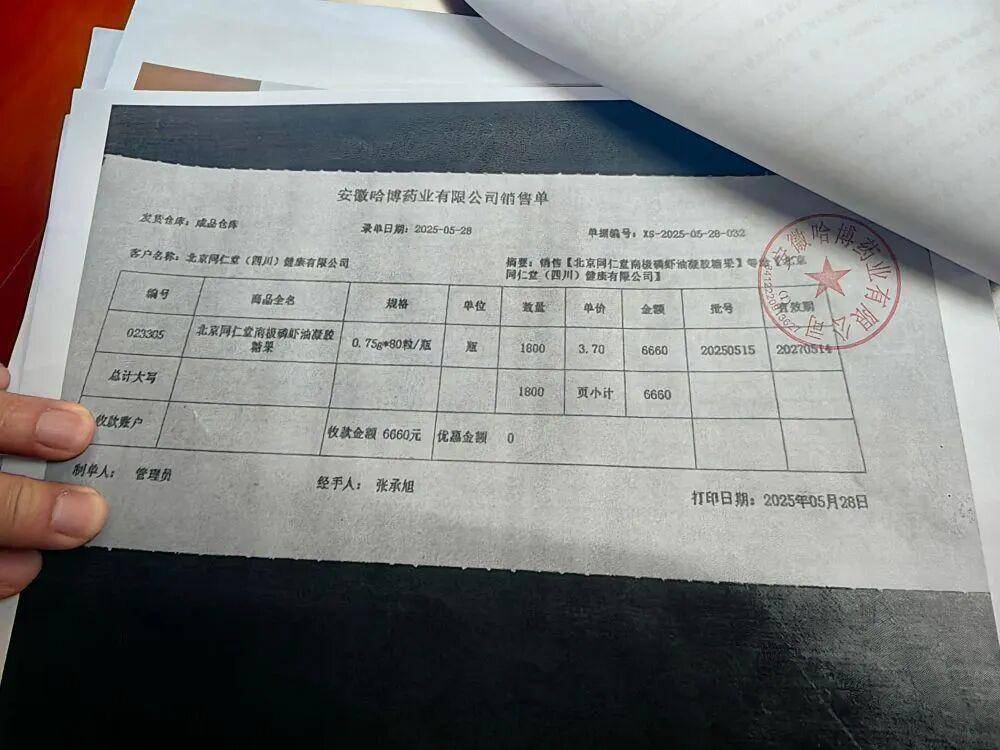 安徽哈博药业有限公司销售单
发货仓库：成品仓库 录单日期：2025-05-28 单据编号：XS-2025-05-28-032
客户名称：北京同仁堂（四川）健康有限公司 摘要：销售【北京同仁堂南极磷虾油凝胶糖果】
同仁堂（四川）健康有限公司】
编号 商品全名 规格 单位 数量 单价 金额 批号 有效期
023305 北京同仁堂南极磷虾油凝胶糖果 0.75g*80粒/瓶 瓶 1800 3.70 6660 20250515 20270514
总计大写 1800 页小计 6660
收款账户 收款金额 6660元 优惠金额 0
制单人： 管理员 经手人： 张承旭 打印日期：2025年05月28日
安徽哈博药业有限公司
(1)